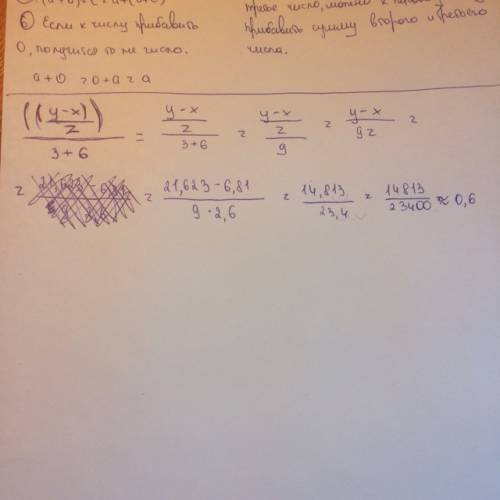 ⑥ Если к числу прибавить
0, получится то же число.
a + 0 = 0 + a = a
третье число, можно к
прибавить сумму второго и третьего
числа.
((y-x)/z)/(3+6) = ((y-x)/z)/(3+6) = ((y-x)/z)/9 = (y-x)/9z =
= = (21,623-6,81)/(9·2,6) = 14,813/23,4 = 14813/23400 ≈ 0,6